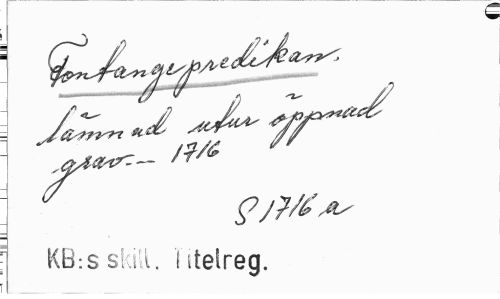 Fontangepredikan.
lämnad utur öppnad
grav.-- 1716
S 1716 a
KB:s skill. Titelreg.